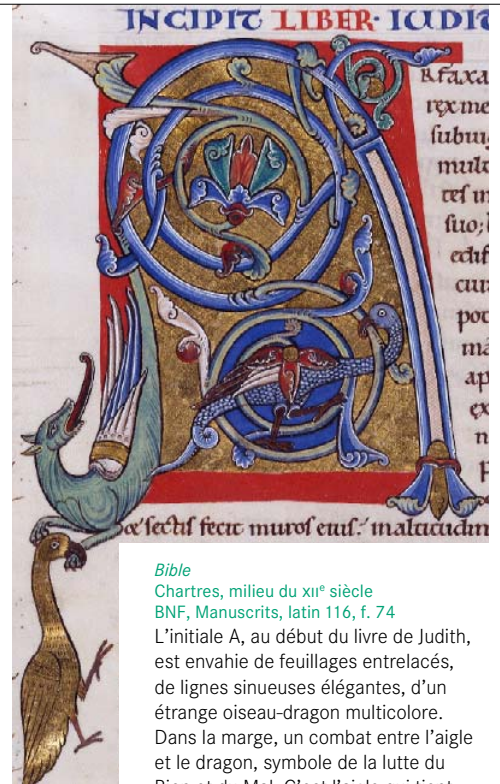 INCIPIT LIBER · IUDIT
Rfaxa
rex me
subiug
mult
tes in
suo;
edif
pot
ma
ap
ex
n
p
sectis fecit muros eius. inaltitudin
Bible
Chartres, milieu du XIIe siècle
BNF, Manuscrits, latin 116, f. 74
L’initiale A, au début du livre de Judith,
est envahie de feuillages entrelacés,
de lignes sinueuses élégantes, d’un
étrange oiseau-dragon multicolore.
Dans la marge, un combat entre l’aigle
et le dragon, symbole de la lutte du
Bien et du Mal. C’est l’aigle qui tient